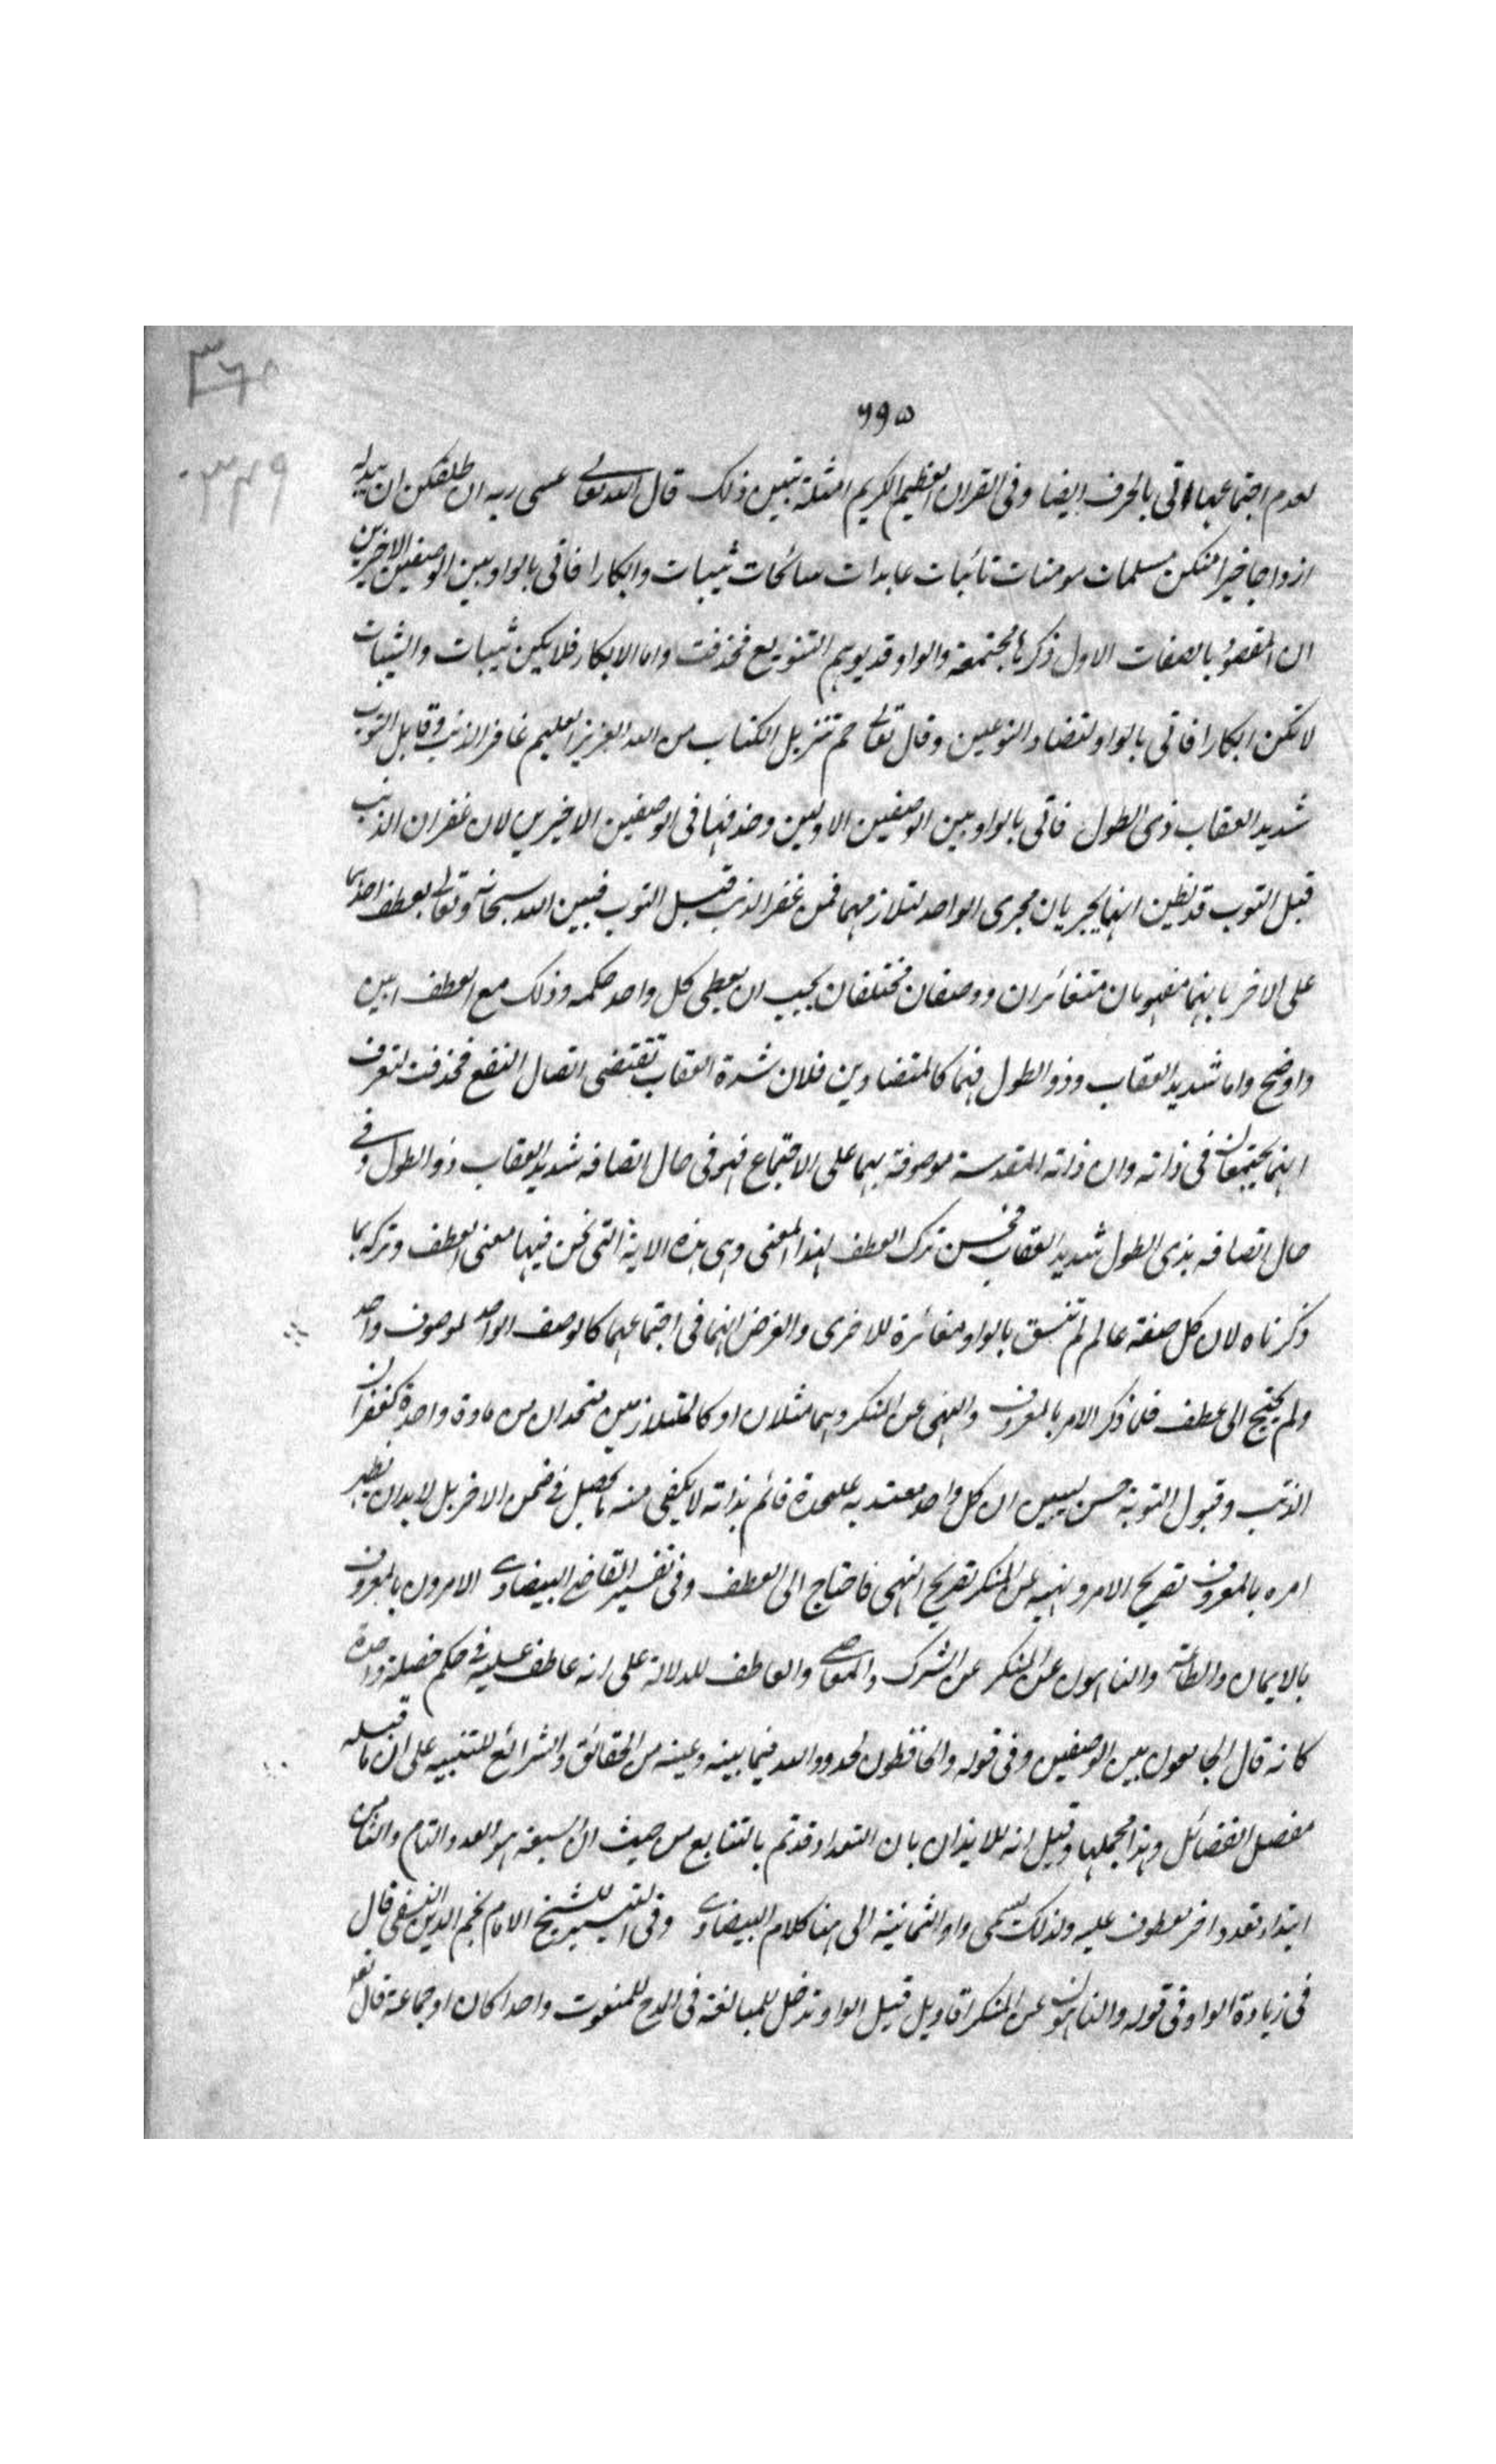 ٣٦٠
٦٩٥
٣٤٩
لعدم اجتماعهما اتى بالحرف ايضا وفى القران العظيم الكريم امثلة تبين ذلك قال الله تعالى عسى ربه ان طلقكن ان يبدله
ازواجا خيرا منكن مسلمات مومنات تائبات عابدات سائحات ثيبات وابكارا فاتى بالواو بين الوصفين الاخيرين
ان المقصود بالصفات الاول ذكرها مجتمعة والواو قد يوهم التنويع فحذفت واما الابكار فلا يكن ثيبات والثيبات
لا تكن ابكارا فاتى بالواو لتضاد النوعين وقال تعالى حم تنزيل الكتاب من الله العزيز العليم غافر الذنب وقابل التوب
شديد العقاب ذى الطول فاتى بالواو بين الوصفين الاولين وحذفها فى الوصفين الاخيرين لان غفران الذنب
قبل التوب قد يظن انهما يجريان مجرى الواحد لتلازمهما فمن غفر الذنب قبل التوب فبين الله سبحانه وتعالى بعطف احدهما
على الاخر بانهما مفهومان متغائران ووصفان مختلفان يجب ان يعطى كل واحد حكمه وذلك مع العطف ابين
واوضح واما شديد العقاب وذو الطول فهما كالمتضادين فلان شدة العقاب تقتضى اتصال النفع فحذفت لتعرف
انهما يجتمعان فى ذاته وان ذاته المقدسة موصوفة بهما على الاجتماع فهو فى حال اتصافه شديد العقاب ذو الطول وفى
حال اتصافه بذى الطول شديد العقاب فحسن ترك العطف لهذا المعنى وهى هذه الاية التى نحن فيها معنى العطف وتركه بما
ذكرناه لان كل صفة عالم لم تنسق بالواو مغائرة للاخرى والغرض انهما فى اجتماعهما كالوصف الواحد لموصوف واحد
ولم يحتج الى عطف فلما ذكر الامر بالمعروف والنهى عن المنكر وهما مثلان او كالمتلازمين متحدان من مادة واحدة كغفران
الذنب وقبول التوبة حسن ليبين ان كل واحد معتد به علىحدة قائم بذاته لا يكفى منه ما يحصل فى ضمن الاخر بل لابد ان يظهر
امره بالمعروف تصريح الامر ونهيه عن المنكر تصريح النهى فاحتاج الى العطف وفى تفسير القاضى البيضاوى الامرون بالمعروف
بالايمان والطاعة والناهون عن المنكر عن الشرك والمعاصى والعاطف للدلالة على انه عاطف عليه فى حكم خصلة واحدة
كانه قال الجامعون بين الوصفين وفى قوله والحافظون لحدود الله فيما بينه وعينه من الحقائق والشرائع للتنبيه على ان ما قبله
مفصل الفضائل وهذا مجملها وقيل انه للايذان بان التعداد قد تم بالتتابع من حيث ان السبعة هو العدد التام والثامن
ابتداء تعدد اخر معطوف عليه ولذلك تسمى واو الثمانية الى هنا كلام البيضاوى وفى التيسير للشيخ الامام نجم الدين النسفى قال
فى زيادة الواو فى قوله والناهون عن المنكر اقاويل قيل الواو تدخل للمبالغة فى المدح للمنعوت واحدا كان او جماعة قال تعالى